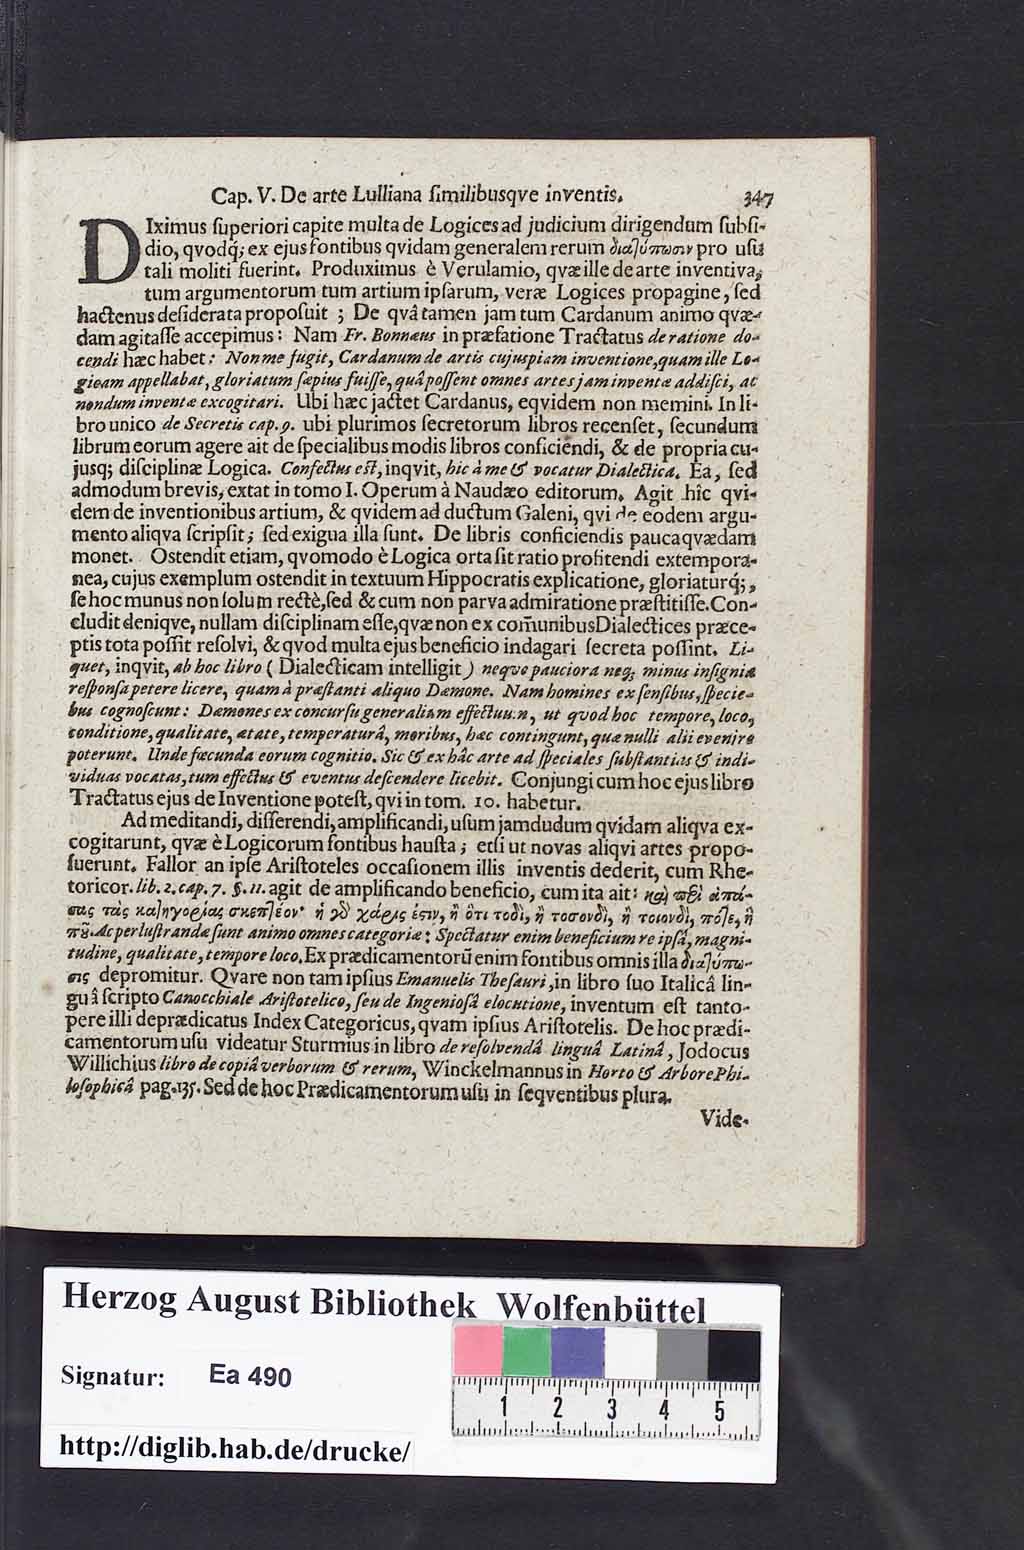 Cap. V. De arte Lulliana ſimilibusqve inventis. 347
DIximus ſuperiori capite multa de Logices ad judicium dirigendum ſubſi-
dio, qvodq́; ex ejus fontibus qvidam generalem rerum διατύπωσιν pro uſu
tali moliti fuerint. Produximus è Verulamio, qvæ ille de arte inventiva,
tum argumentorum tum artium ipſarum, veræ Logices propagine, ſed
hactenus deſiderata propoſuit; De qvâ tamen jam tum Cardanum animo qvæ-
dam agitaſſe accepimus: Nam Fr. Bonnæus in præfatione Tractatus de ratione do-
cendi hæc habet: Non me fugit, Cardanum de artis cujuspiam inventione, quam ille Lo-
gicam appellabat, gloriatum ſæpius fuiſſe, quâ poſſent omnes artes jam inventæ addiſci, ac
nondum inventæ excogitari. Ubi hæc jactet Cardanus, eqvidem non memini. In li-
bro unico de Secretis cap. 9. ubi plurimos ſecretorum libros recenſet, ſecundum
librum eorum agere ait de ſpecialibus modis libros conficiendi, & de propria cu-
jusq; diſciplinæ Logica. Confectus eſt, inqvit, hic à me & vocatur Dialectica. Ea, ſed
admodum brevis, extat in tomo I. Operum à Naudæo editorum. Agit hîc qvi-
dem de inventionibus artium, & qvidem ad ductum Galeni, qvi de eodem argu-
mento aliqva ſcripſit; ſed exigua illa ſunt. De libris conficiendis pauca qvædam
monet. Oſtendit etiam, qvomodo è Logica orta ſit ratio profitendi extempora-
nea, cujus exemplum oſtendit in textuum Hippocratis explicatione, gloriaturq́;,
ſe hoc munus non ſolum rectè, ſed & cum non parva admiratione præſtitiſſe. Con-
cludit deniqve, nullam diſciplinam eſſe, qvæ non ex com̃unibus Dialectices præce-
ptis tota poſſit reſolvi, & qvod multa ejus beneficio indagari ſecreta poſſint. Li-
quet, inqvit, ab hoc libro (Dialecticam intelligit) neqve pauciora neq; minus inſignia
reſponſa petere licere, quam à præſtanti aliquo Dæmone. Nam homines ex ſenſibus, ſpecie-
bus cognoſcunt: Dæmones ex concurſu generalium effectuum, ut quod hoc tempore, loco,
conditione, qualitate, ætate, temperaturâ, moribus, hæc contingunt, quæ nulli alii evenire
poterunt. Unde fœcunda eorum cognitio. Sic & ex hâc arte ad ſpeciales ſubſtantias & indi-
viduas vocatas, tum effectus & eventus deſcendere licebit. Conjungi cum hoc ejus libro
Tractatus ejus de Inventione poteſt, qvi in tom. 10. habetur.
Ad meditandi, diſſerendi, amplificandi, uſum jamdudum qvidam aliqva ex-
cogitarunt, qvæ è Logicorum fontibus hauſta; etſi ut novas aliqvi artes propo-
ſuerunt. Fallor an ipſe Ariſtoteles occaſionem illis inventis dederit, cum Rhe-
toricor. lib. 2. cap. 7. §. 11. agit de amplificando beneficio, cum ita ait: καὶ περὶ ἁπά-
σας τὰς κατηγορίας σκεπτέον· ἡ γὸ χάρις ἐστιν, ἢ ὅτι τοδὶ, ἢ τοσονδὶ, ἢ τοιονδὶ, πότε, ἢ
πȣ̃. Ac perluſtrandæ ſunt animo omnes categoriæ: Spectatur enim beneficium re ipſâ, magni-
tudine, qualitate, tempore loco. Ex prædicamentorū enim fontibus omnis illa διατύπω-
σις depromitur. Qvare non tam ipſius Emanuelis Theſauri, in libro ſuo Italicâ lin-
guâ ſcripto Canocchiale Ariſtotelico, ſeu de Ingenioſâ elocutione, inventum eſt tanto-
pere illi deprædicatus Index Categoricus, qvam ipſius Ariſtotelis. De hoc prædi-
camentorum uſu videatur Sturmius in libro de reſolvendâ linguâ Latinâ, Jodocus
Willichius libro de copiâ verborum & rerum, Winckelmannus in Horto & Arbore Phi-
loſophicâ pag. 135. Sed de hoc Prædicamentorum uſu in ſeqventibus plura.
Vide-
Herzog August Bibliothek Wolfenbüttel
Signatur: Ea 490
1 2 3 4 5
http://diglib.hab.de/drucke/